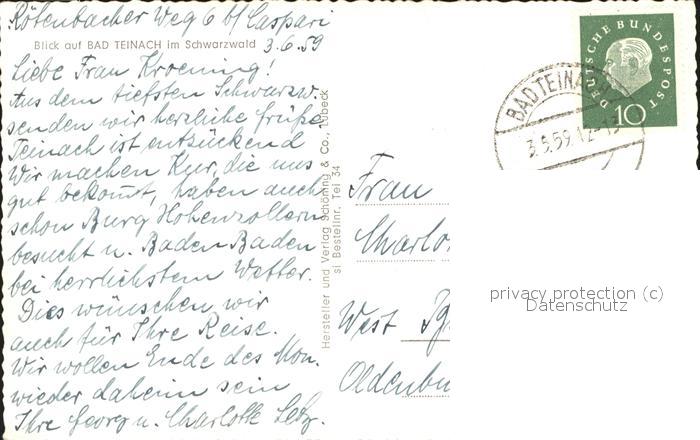 Rötenbacher Weg 6 b/ Caspari
Blick auf BAD TEINACH im Schwarzwald 3.6.59
Liebe Frau Kroening!
Aus dem tiefsten Schwarzw.
senden wir herzliche Grüße
Teinach ist entzückend
Wir machen Kur, die uns
gut bekommt, haben auch
schon Burg Hohenzollern
besucht u. Baden Baden
bei herrlichstem Wetter.
Dies wünschen wir
auch für Ihre Reise.
Wir wollen Ende des Mon.
wieder daheim sein
Ihre Georg u. Charlotte
Hersteller und Verlag Schöning & Co., Lübeck
si Bestellnr. Tei 34
DEUTSCHE BUNDESPOST
10
BAD TEINACH
3.6.59.12-13
Frau
Charlo
West
Oldenbu
privacy protection (c)
Datenschutz